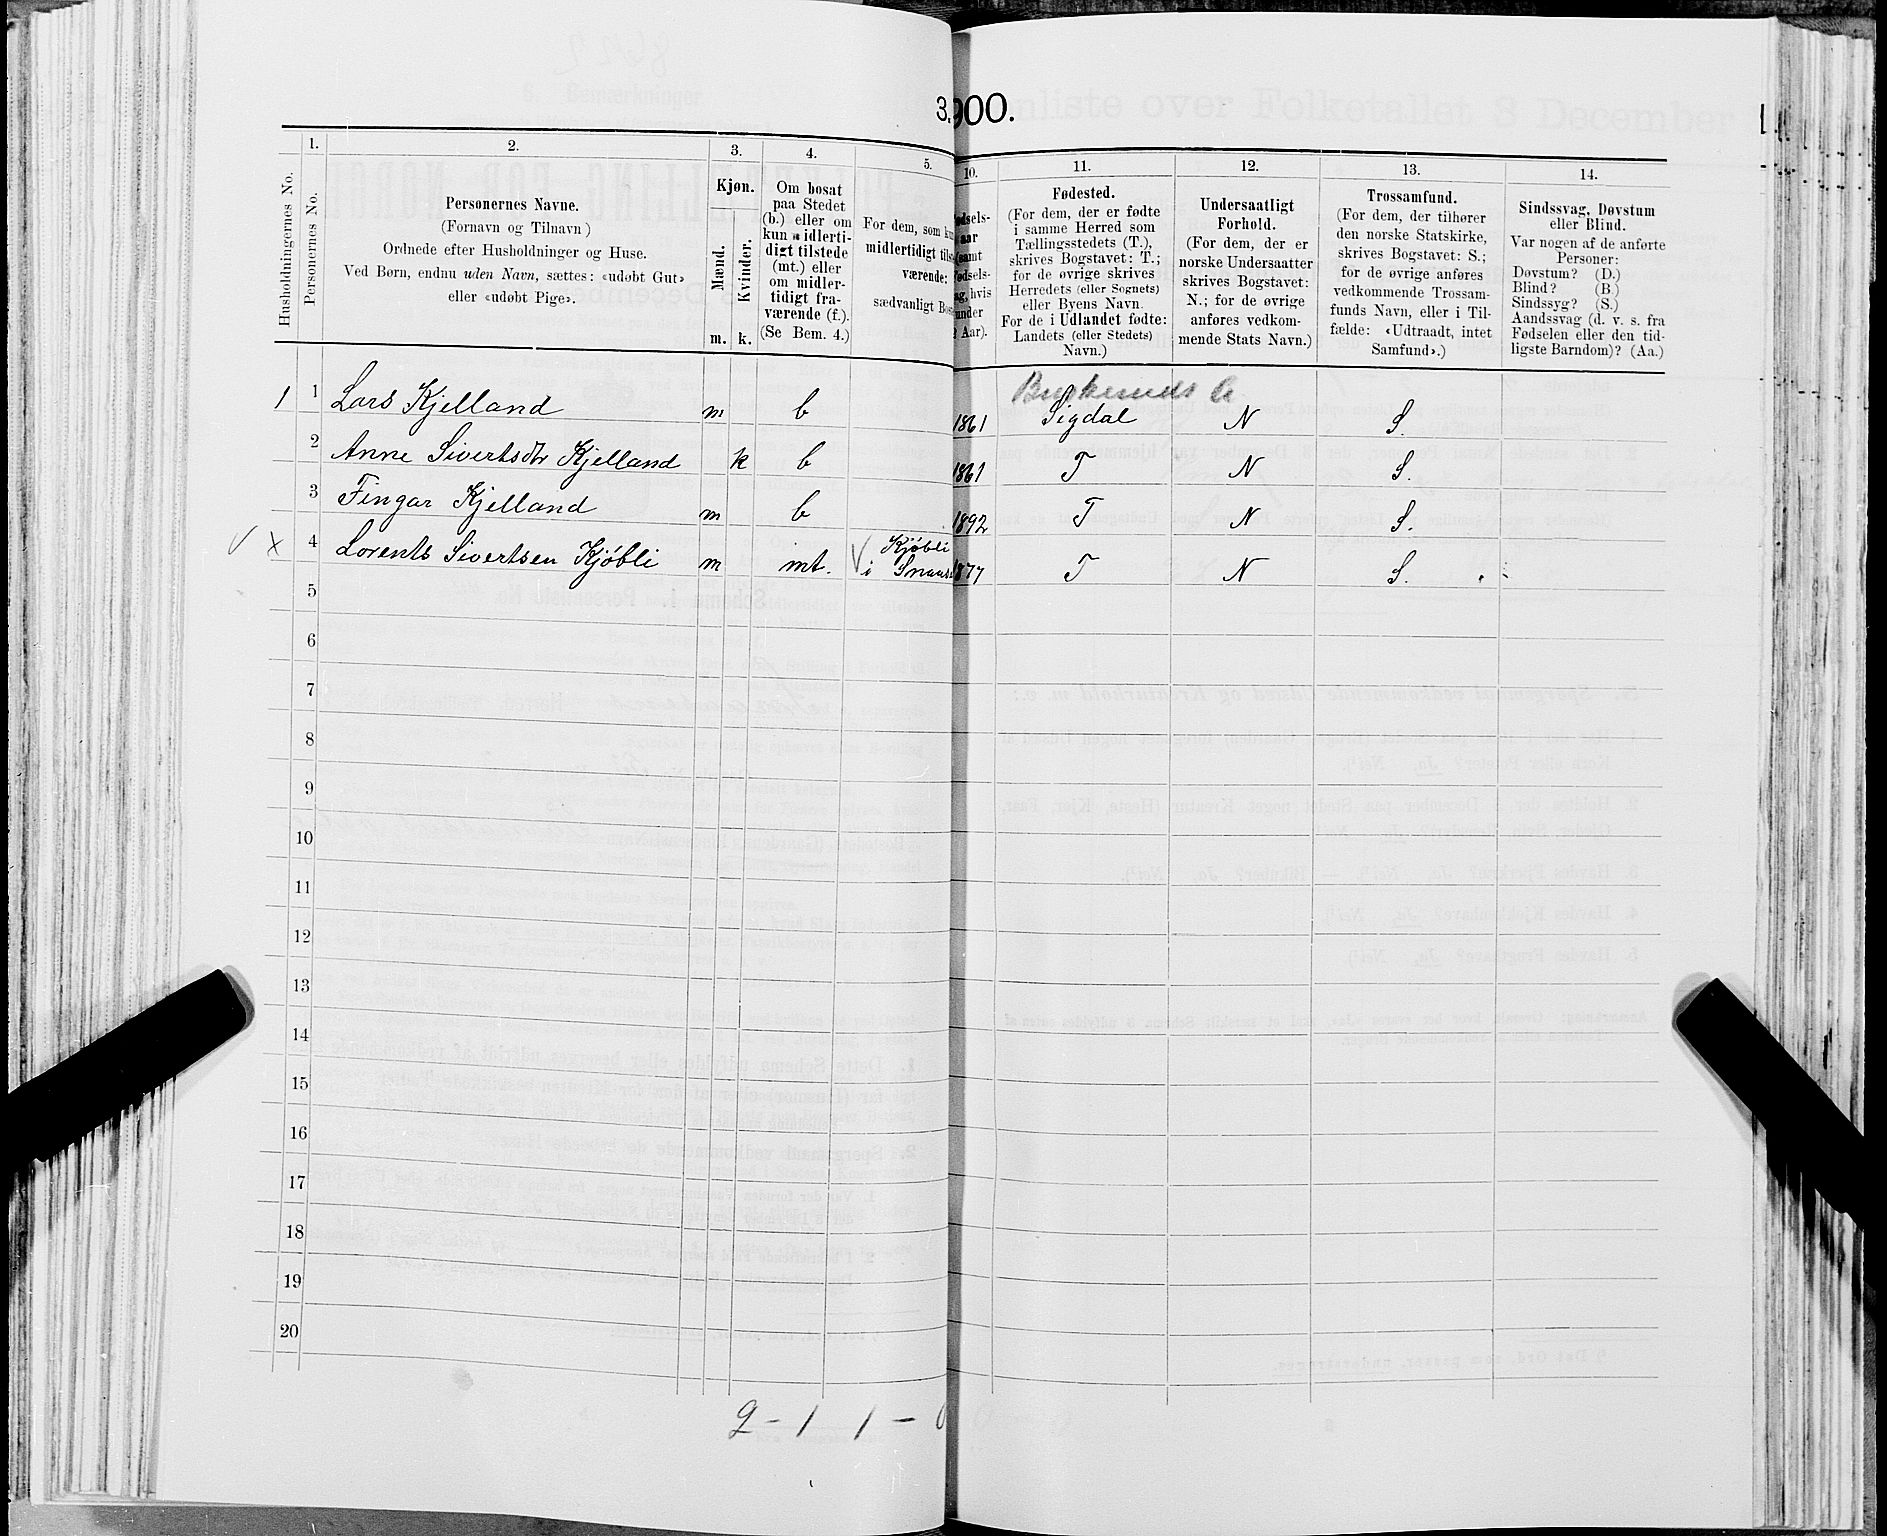 3.900.
Husholdningernes No.
1.
Personernes No.
2.
Personernes Navne.
(Fornavn og Tilnavn)
Ordnede efter Husholdninger og Huse.
Ved Børn, endnu uden Navn, sættes: «udøbt Gut»
eller «udøbt Pige».
3.
Kjøn.
Mænd.
Kvinder.
m. k.
4.
Om bosat
paa Stedet
(b.) eller om
kun midlerti-
digt tilstede
(mt.) eller
om midler-
tidigt fra-
værende (f.).
(Se Bem. 4.)
5.
For dem, som
midlertidigt
værende:
sædvanligt
10.
hvis
Aar).
11.
Fødested.
(For dem, der er fødte
i samme Herred som
Tællingsstedets (T.),
skrives Bogstavet: T.;
for de øvrige skrives
Herredets (eller Sognets)
eller Byens Navn.
For de i Udlandet fødte:
Landets (eller Stedets)
Navn.)
12.
Undersaatligt
Forhold.
(For dem, der er
norske Undersaatter
skrives Bogstavet:
N.; for de øvrige
anføres vedkom-
mende Stats Navn.)
13.
Trossamfund.
(For dem, der tilhører
den norske Statskirke,
skrives Bogstavet: S.;
for de øvrige anføres
vedkommende Trossam-
funds Navn, eller i Til-
fælde: «Udtraadt, intet
Samfund».)
14.
Sindssvag, Døvstum
eller Blind.
Var nogen af de anførte
Personer:
Døvstum? (D.)
Blind? (B.)
Sindssyg? (S.)
Aandssvag (d. v. s. fra
Fødselen eller den tid-
ligste Barndom)? (Aa.)
1 1 Lars Kjelland m b 1861 Sigdal N S.
2 Anne Sivertsdtr Kjelland k b 1861 T N S.
3 Fingar Kjelland m b 1892 T N S.
Kjøbli
V x 4 Lorents Sivertsen Kjøbli m mt. V i 1877 T N S.
5
6
7
8
9
10
11
12
13
14
15
16
17
18
19
20
2 - 1 1 - 0